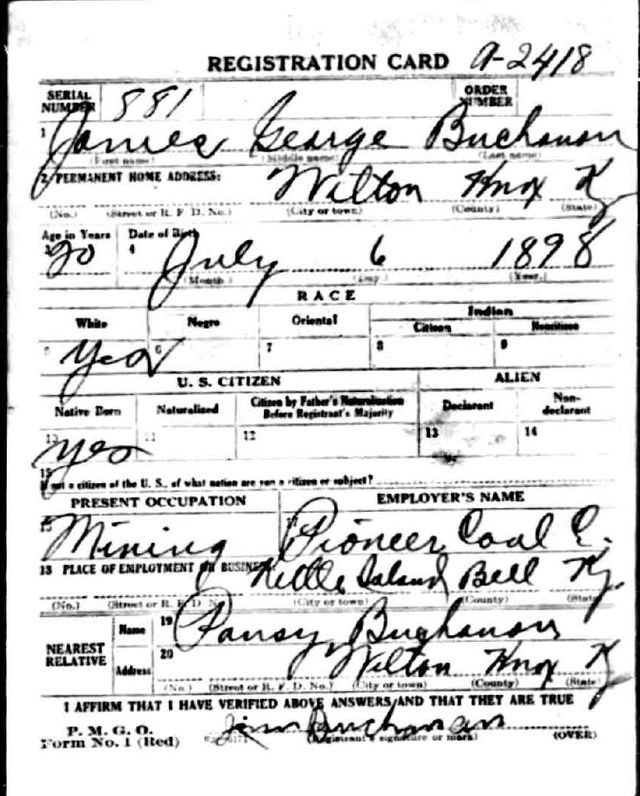 REGISTRATION CARD A-2418
SERIAL NUMBER 881 ORDER NUMBER
1 James George Buchanan
(First name) (Middle name) (Last name)
2 PERMANENT HOME ADDRESS: Wilton Knox Ky
(No.) (Street or R. F. D. No.) (City or town) (County) (State)
Age in Years Date of Birth
3 20 4 July 6 1898
(Month) (Day) (Year)
RACE
White Negro Oriental Indian
Citizen Noncitizen
5 Yes 6 7 8 9
U. S. CITIZEN ALIEN
Native Born Naturalized Citizen by Father's Naturalization Before Registrant's Majority Declarant Non-declarant
10 Yes 11 12 13 14
15 If not a citizen of the U. S., of what nation are you a citizen or subject?
PRESENT OCCUPATION EMPLOYER'S NAME
Mining Pioneer Coal C.
18 PLACE OF EMPLOYMENT OR BUSINESS: Island Bell Ky.
(No.) (Street or R. F. D. No.) (City or town) (County) (State)
NEAREST RELATIVE
Name 19 Pansy Buchanan
Address 20 Wilton Knox K
(No.) (Street or R. F. D. No.) (City or town) (County) (State)
I AFFIRM THAT I HAVE VERIFIED ABOVE ANSWERS AND THAT THEY ARE TRUE
P. M. G. O.
Form No. 1 (Red) Jim Buchanan
(Registrant's signature or mark) (OVER)